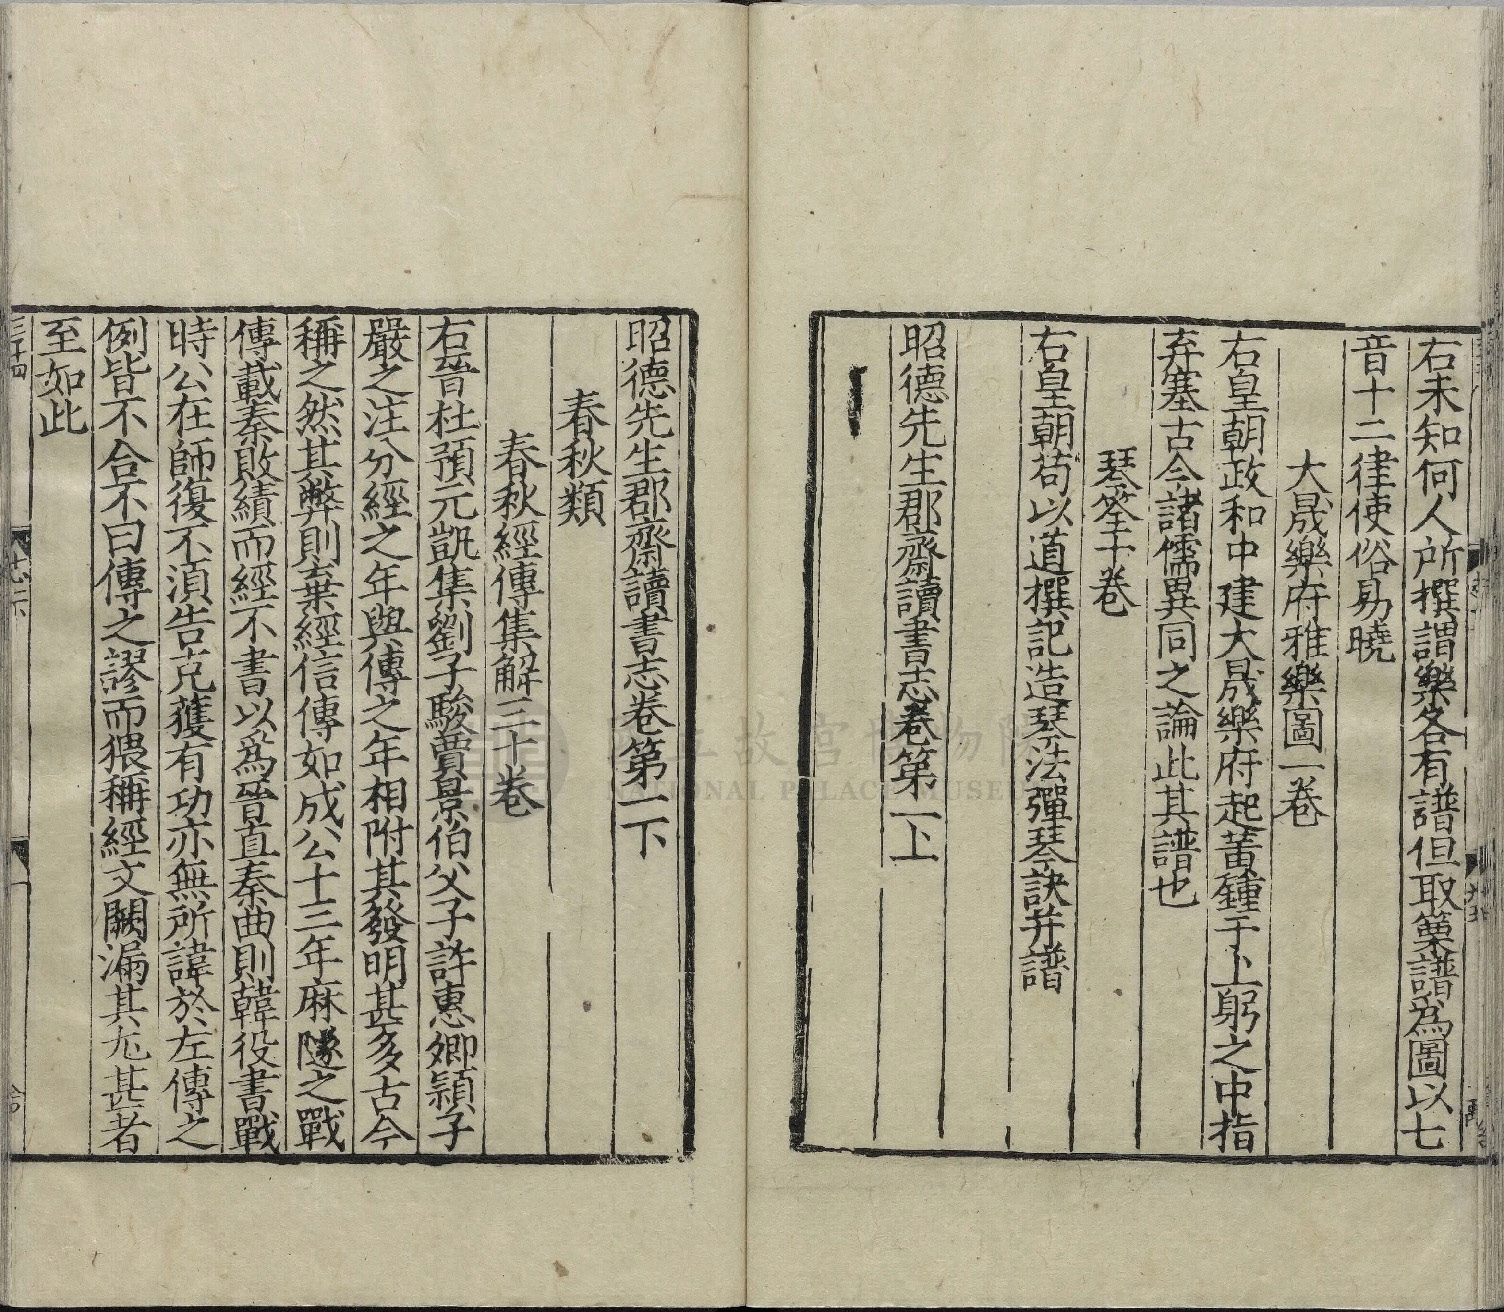 右未知何人所撰謂樂各有譜但取篥譜為圖以七
音十二律使俗易曉
大晟樂府雅樂圖一卷
右皇朝政和中建大晟樂府起黃鍾于上躬之中指
弃塞古今諸儒異同之論此其譜也
琴筌十卷
右皇朝荀以道撰記造琴法彈琴訣并譜
昭德先生郡齋讀書志卷第一上
昭德先生郡齋讀書志卷第一下
春秋類
春秋經傳集解三十卷
右晉杜預元凱集劉子駿賈景伯父子許惠卿穎子
嚴之注分經之年與傳之年相附其發明甚多古今
稱之然其弊則棄經信傳如成公十三年麻隧之戰
傳載秦敗績而經不書以為晉直秦曲則韓役書戰
時公在師復不須告克獲有功亦無所諱於左傳之
例皆不合不曰傳之謬而猥稱經文闕漏其尤甚者
至如此
國立故宮博物院
NATIONAL PALACE MUSEUM